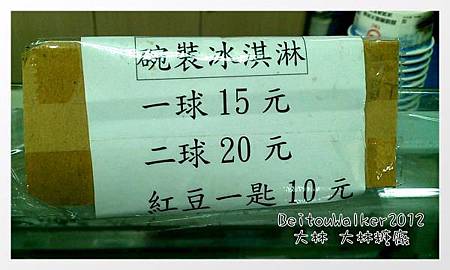 碗裝冰淇淋
一球15元
二球20元
紅豆一匙10元
BeitouWalker2012
大林 大林糖廠